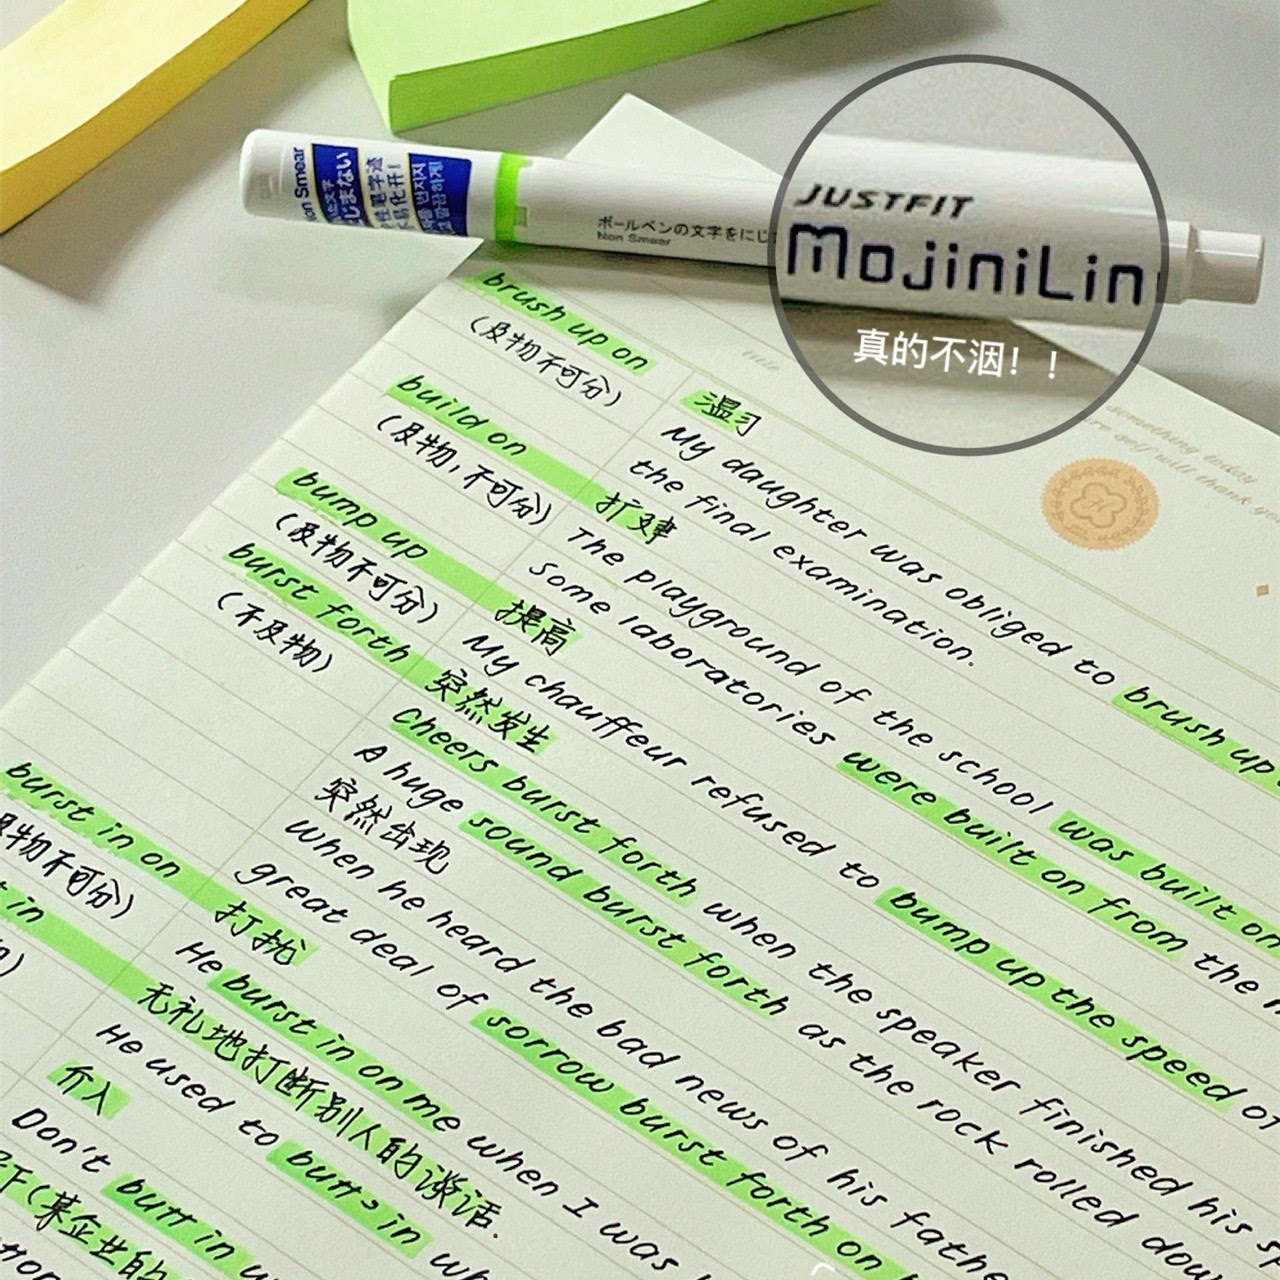 Non Smear
にじまない
ボールペンの文字をにじ
Non Smear
JUSTFIT
MojiniLin
真的不洇！！
title
brush up on
(及物不可分)
温习
My daughter was obliged to brush up
the final examination.
build on
(及物,不可分)
扩建
The playground of the school was built on
Some laboratories were built on from the
bump up
(及物不可分)
提高
My chauffeur refused to bump up the speed of
burst forth
(不及物)
突然发生
Cheers burst forth when the speaker finished his
A huge sound burst forth as the rock rolled dow
突然出现
When he heard the bad news of his fathe
great deal of sorrow burst forth on
burst in on
及物不可分)
打扰
He burst in on me when I was
in
无礼地打断别人的谈话.
He used to butts in wh
介入
Don't butt in
(某企业的